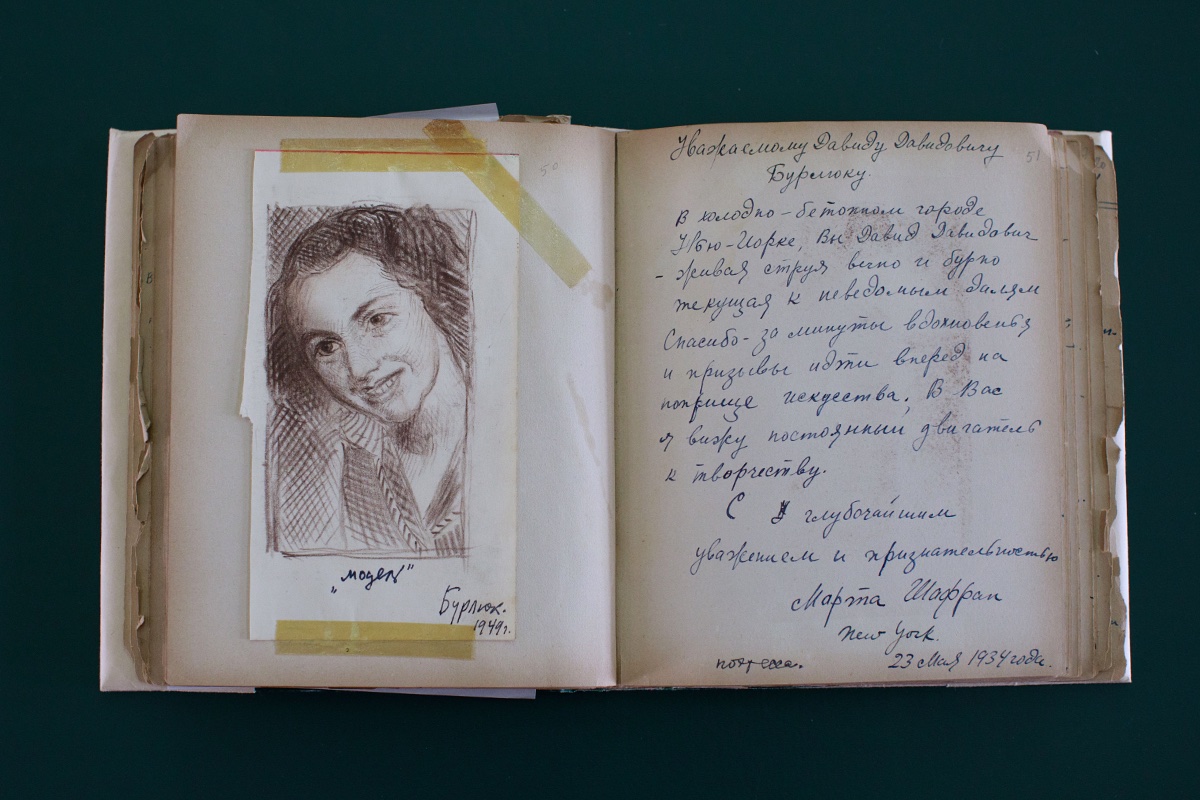 50
„модель"
Бурлюк.
1949г.
51
Уважаемому Давиду Давидовичу
Бурлюку.
В холодно-бетонном городе
Нью-Иорке, Вы Давид Давидович
- живая струя вечно и бурно
текущая к неведомым далям
Спасибо - за минуты вдохновенья
и призывы идти вперед на
поприще искусства. В Вас
я вижу постоянный двигатель
к творчеству.
С глубочайшим
уважением и признательностью
Марта Шафран
New York.
23 Мая 1934 года.